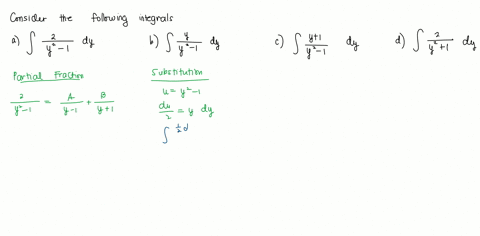 Consider the following integrals
a) ∫ 2/(y²-1) dy b) ∫ y/(y²-1) dy c) ∫ (y+1)/(y²-1) dy d) ∫ 2/(y²+1) dy
Partial Fraction
2/(y²-1) = A/(y-1) + B/(y+1)
Substitution
u = y²-1
du/2 = y dy
∫ 1/2 d